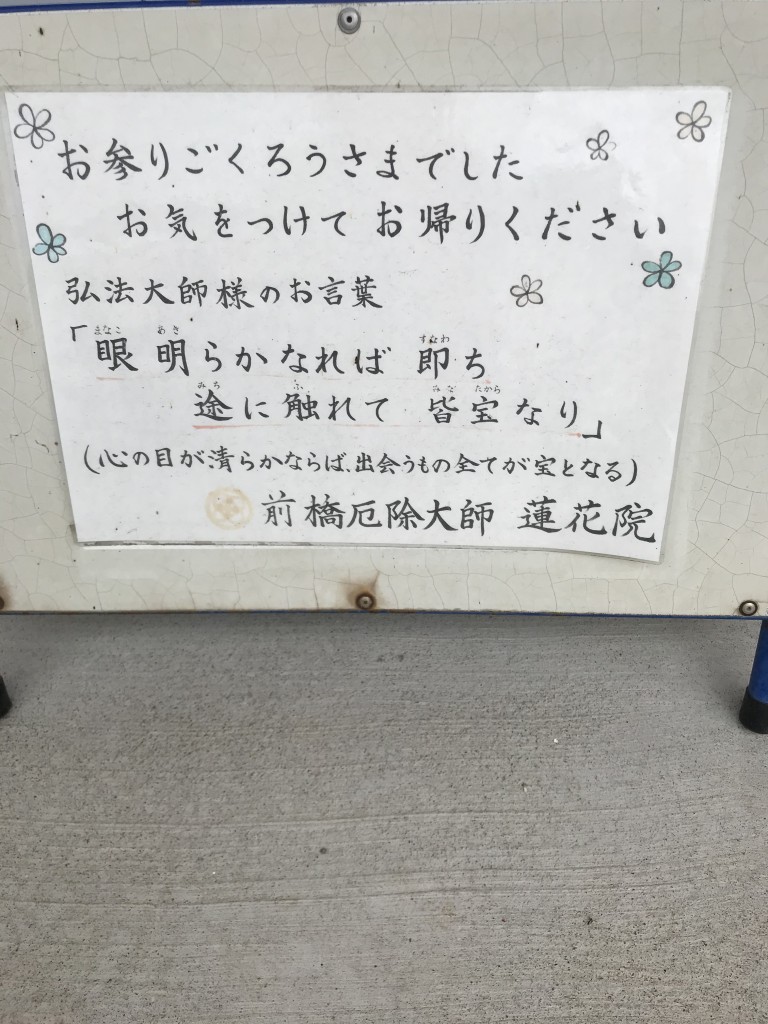 お参りごくろうさまでした
お気をつけてお帰りください
弘法大師様のお言葉
「眼明らかなれば即ち
途に触れて皆宝なり」
(心の目が清らかならば、出会うもの全てが宝となる)
前橋厄除大師 蓮花院